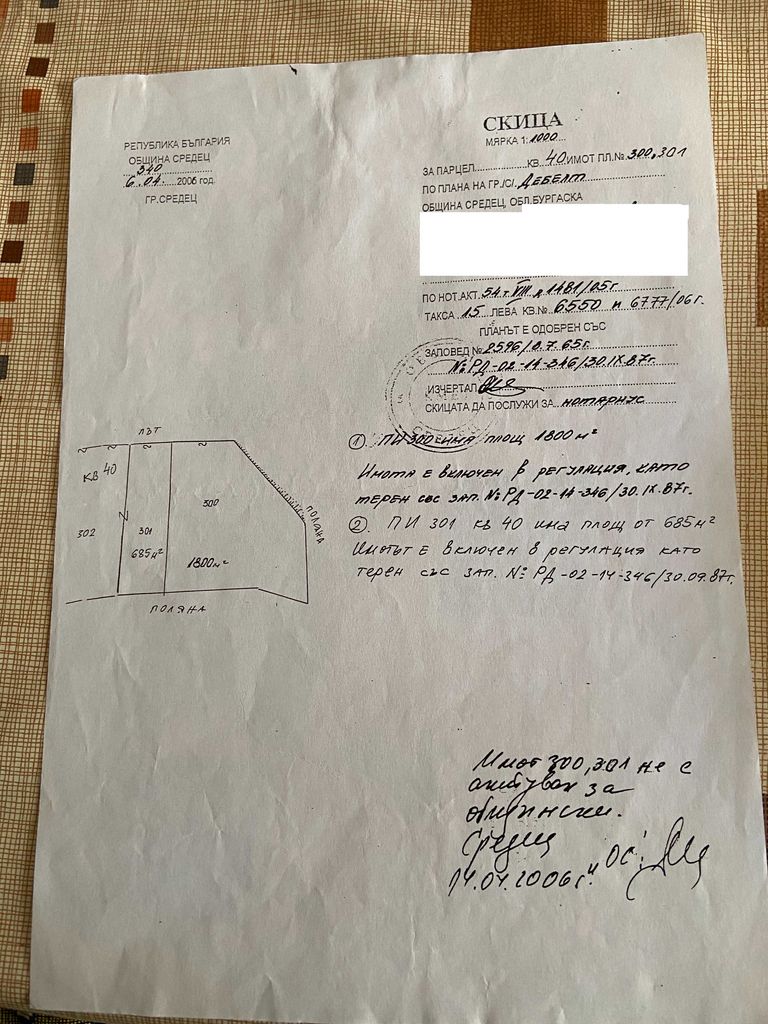 РЕПУБЛИКА БЪЛГАРИЯ
ОБЩИНА СРЕДЕЦ
340
6.04. 2006 год.
ГР.СРЕДЕЦ
СКИЦА
МЯРКА 1:1000
ЗА ПАРЦЕЛ..........КВ.40 ИМОТ ПЛ.№ 300,301
ПО ПЛАНА НА ГР./С/. ДЕБЕЛТ
ОБЩИНА СРЕДЕЦ, ОБЛ.БУРГАСКА
ПО НОТ.АКТ. 54 т. VIII д 1481/05г
ТАКСА 15 ЛЕВА КВ.№ 6550 и 6777/06г.
ПЛАНЪТ Е ОДОБРЕН СЪС
ЗАПОВЕД № 2596/8.7.65г.
№ РД-02-14-346/30.IX.87г.
ИЗЧЕРТАЛ
СКИЦАТА ДА ПОСЛУЖИ ЗА нотариус
① ПИ 300 има площ 1800 м²
Имота е включен в регулация, като
терен със зап. № РД-02-14-346/30.IX.87г.
② ПИ 301 кв 40 има площ от 685 м²
Имотът е включен в регулация като
терен със зап. № РД-02-14-346/30.09.87г.
ПЪТ
КВ 40
302
301
685 м²
300
1800 м²
ПОЛЯНА
ПОЛЯНА
Имот 300,301 не е
актуван за
общински.
Средец
14.04.2006г.